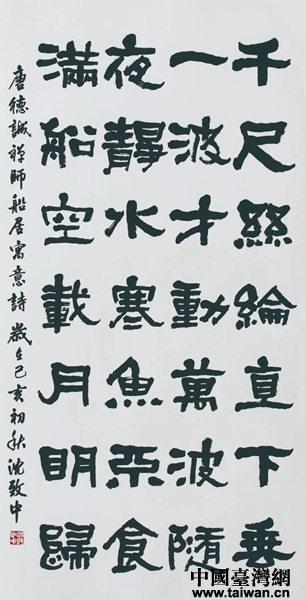 千尺絲綸直下垂
一波才動萬波隨
夜靜水寒魚不食
滿船空載月明歸
唐德誠禅師船居寓意詩 歲在己亥初秋 沈致中
中國臺灣網
www.taiwan.cn